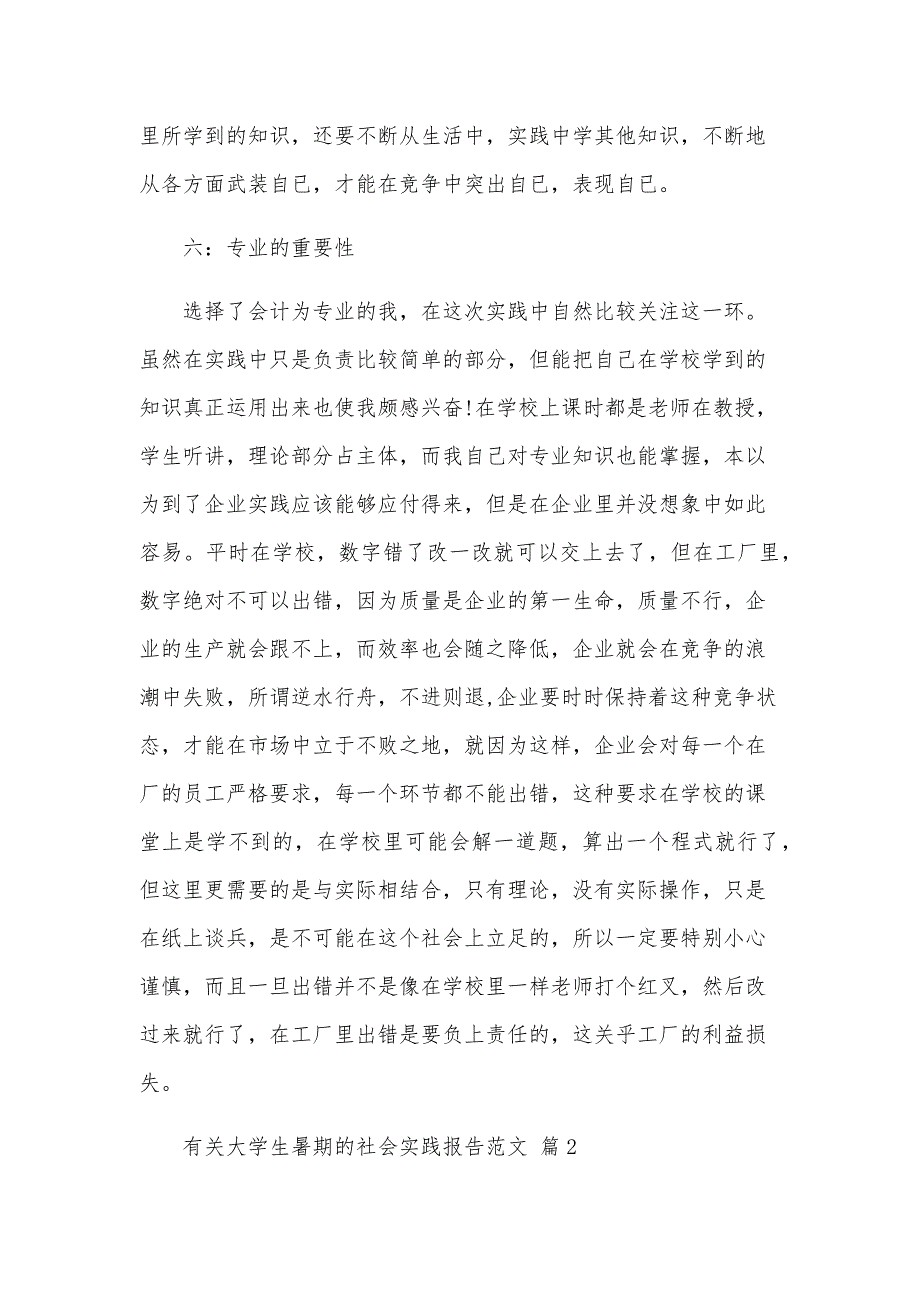 里所学到的知识，还要不断从生活中，实践中学其他知识，不断地
从各方面武装自已，才能在竞争中突出自已，表现自已。
六：专业的重要性
选择了会计为专业的我，在这次实践中自然比较关注这一环。
虽然在实践中只是负责比较简单的部分，但能把自己在学校学到的
知识真正运用出来也使我颇感兴奋!在学校上课时都是老师在教授，
学生听讲，理论部分占主体，而我自己对专业知识也能掌握，本以
为到了企业实践应该能够应付得来，但是在企业里并没想象中如此
容易。平时在学校，数字错了改一改就可以交上去了，但在工厂里，
数字绝对不可以出错，因为质量是企业的第一生命，质量不行，企
业的生产就会跟不上，而效率也会随之降低，企业就会在竞争的浪
潮中失败，所谓逆水行舟，不进则退,企业要时时保持着这种竞争状
态，才能在市场中立于不败之地，就因为这样，企业会对每一个在
厂的员工严格要求，每一个环节都不能出错，这种要求在学校的课
堂上是学不到的，在学校里可能会解一道题，算出一个程式就行了，
但这里更需要的是与实际相结合，只有理论，没有实际操作，只是
在纸上谈兵，是不可能在这个社会上立足的，所以一定要特别小心
谨慎，而且一旦出错并不是像在学校里一样老师打个红叉，然后改
过来就行了，在工厂里出错是要负上责任的，这关乎工厂的利益损
失。
有关大学生暑期的社会实践报告范文 篇2